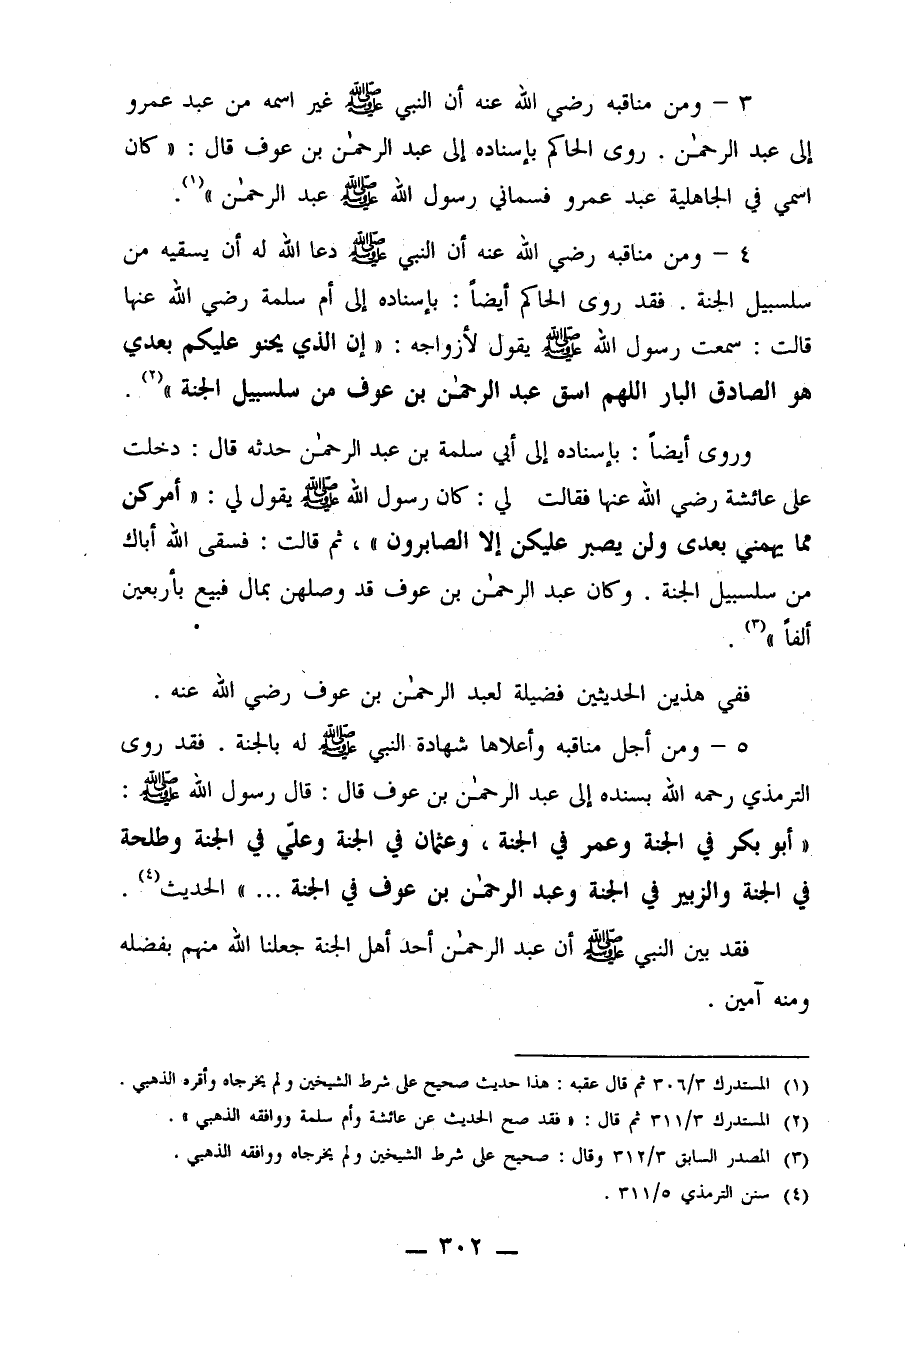 ٣ – ومن مناقبه رضي الله عنه أن النبي ﷺ غير اسمه من عبد عمرو
إلى عبد الرحمٰن . روى الحاكم بإسناده إلى عبد الرحمٰن بن عوف قال : « كان
اسمي في الجاهلية عبد عمرو فسماني رسول الله ﷺ عبد الرحمٰن »(١).
٤ – ومن مناقبه رضي الله عنه أن النبي ﷺ دعا الله له أن يسقيه من
سلسبيل الجنة . فقد روى الحاكم أيضاً : بإسناده إلى أم سلمة رضي الله عنها
قالت : سمعت رسول الله ﷺ يقول لأزواجه : « إن الذي يحنو عليكم بعدي
هو الصادق البار اللهم اسق عبد الرحمٰن بن عوف من سلسبيل الجنة »(٢) .
وروى أيضاً : بإسناده إلى أبي سلمة بن عبد الرحمٰن حدثه قال : دخلت
على عائشة رضي الله عنها فقالت لي : كان رسول الله ﷺ يقول لي : « أمركن
مما يهمني بعدى ولن يصبر عليكن إلا الصابرون » ، ثم قالت : فسقى الله أباك
من سلسبيل الجنة . وكان عبد الرحمٰن بن عوف قد وصلهن بمال فبيع بأربعين
ألفاً »(٣) .
ففي هذين الحديثين فضيلة لعبد الرحمٰن بن عوف رضي الله عنه .
٥ – ومن أجل مناقبه وأعلاها شهادة النبي ﷺ له بالجنة . فقد روى
الترمذي رحمه الله بسنده إلى عبد الرحمٰن بن عوف قال : قال رسول الله ﷺ :
« أبو بكر في الجنة وعمر في الجنة ، وعثمان في الجنة وعليّ في الجنة وطلحة
في الجنة والزبير في الجنة وعبد الرحمٰن بن عوف في الجنة ... » الحديث(٤) .
فقد بين النبي ﷺ أن عبد الرحمٰن أحد أهل الجنة جعلنا الله منهم بفضله
ومنه آمين .
(١) المستدرك ٣٠٦/٣ ثم قال عقبه : هذا حديث صحيح على شرط الشيخين ولم يخرجاه وأقره الذهبي .
(٢) المستدرك ٣١١/٣ ثم قال : « فقد صح الحديث عن عائشة وأم سلمة ووافقه الذهبي » .
(٣) المصدر السابق ٣١٢/٣ وقال : صحيح على شرط الشيخين ولم يخرجاه ووافقه الذهبي .
(٤) سنن الترمذي ٣١١/٥ .
— ٣٠٢ —